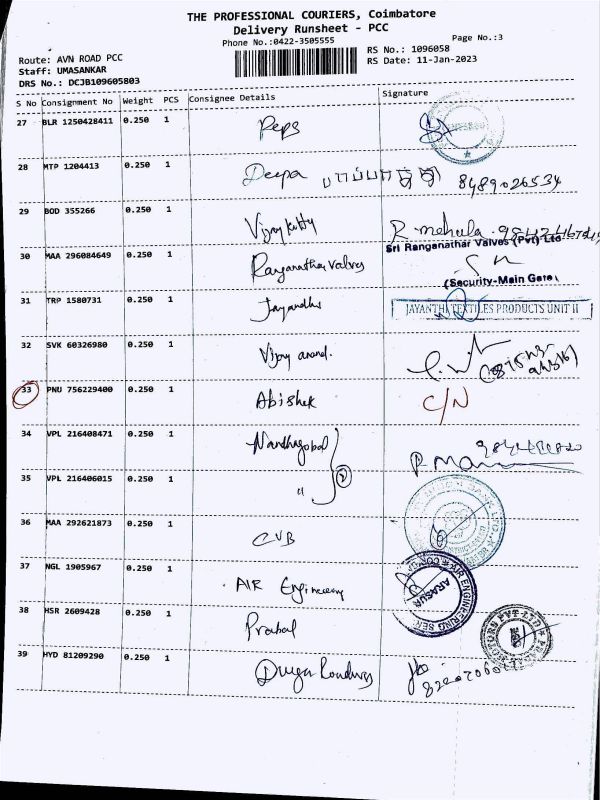 THE PROFESSIONAL COURIERS, Coimbatore
Delivery Runsheet - PCC
Phone No.:0422-3505555
Page No.:3
Route: AVN ROAD PCC
RS No.: 1096058
Staff: UMASANKAR
RS Date: 11-Jan-2023
DRS No.: DCJB109605803
S No Consignment No Weight PCS Consignee Details Signature
27 BLR 1250428411 0.250 1 Peps
28 MTP 1204413 0.250 1 Deepa 8489026534
29 BOD 355266 0.250 1 Vijay Kutty R. mehula
30 MAA 296084649 0.250 1 Ranganathar Valves Sri Ranganathar Valves (Pvt) Ltd
(Security-Main Gate)
31 TRP 1580731 0.250 1 Jayandhi JAYANTHI TEXTILES PRODUCTS UNIT II
32 SVK 60326980 0.250 1 Vijay anand.
33 PNU 756229400 0.250 1 Abishek C/N
34 VPL 216408471 0.250 1 Nandhagobal
35 VPL 216406015 0.250 1 " 2
36 MAA 292621873 0.250 1 CVB
37 NGL 1905967 0.250 1 AIR Engineering AIR ENGINEERING SER ARASUR
38 HSR 2609428 0.250 1 Prabal
39 HYD 81209290 0.250 1 Durga